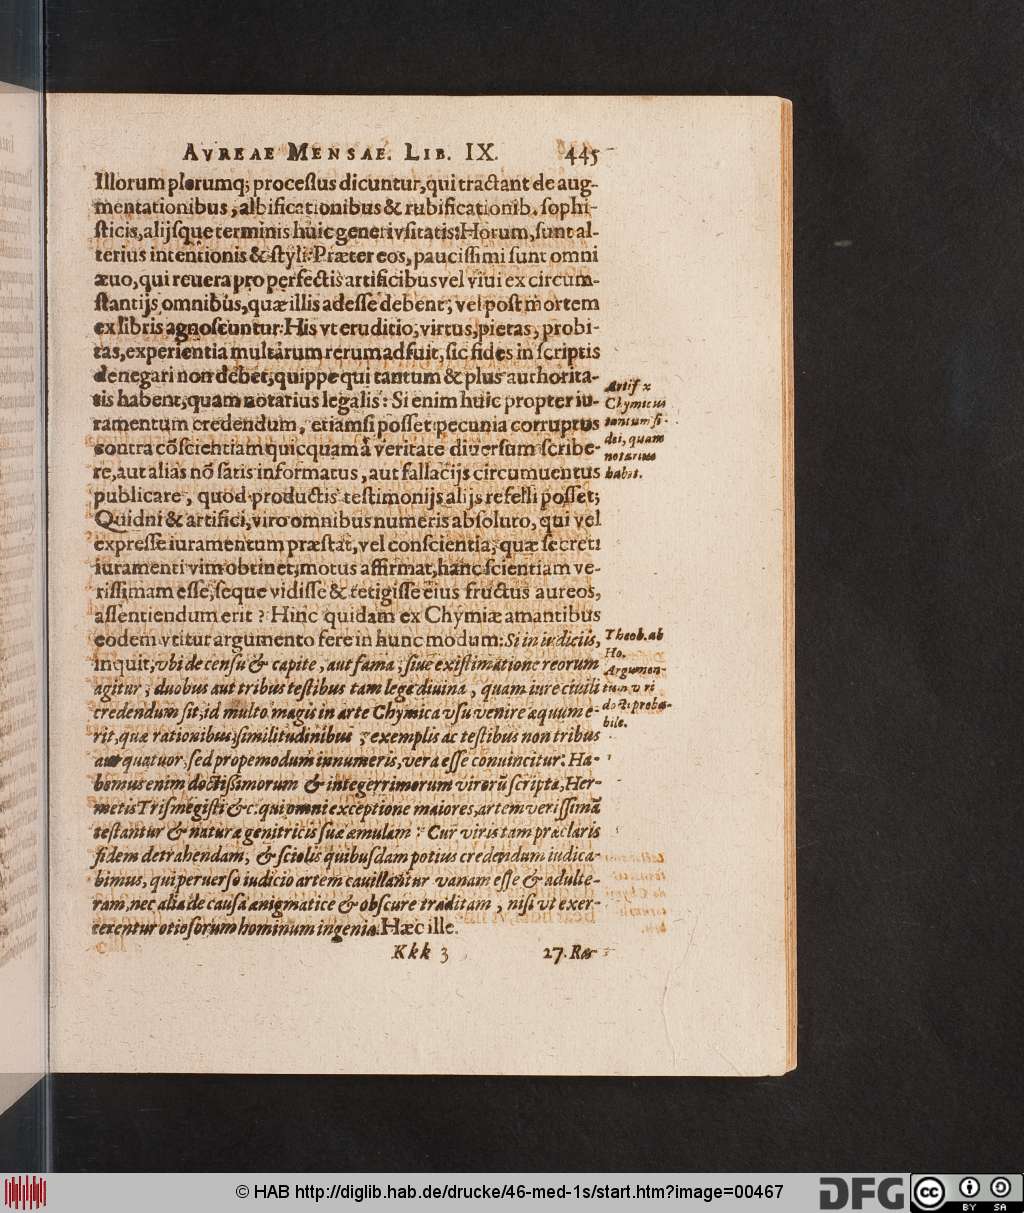 AVREAE MENSAE. LIB. IX. 445
Illorum plerumq; proceſſus dicuntur, qui tractant de aug-
mentationibus, albificationibus & rubificationib. ſophi-
ſticis, alijſque terminis huic generi vſitatis: Horum, ſunt al-
terius intentionis & ſtyli: Præter eos, pauciſſimi ſunt omni
æuo, qui reuera pro perfectis artificibus vel viui ex circum-
ſtantijs omnibus, quæ illis adeſſe debent; vel poſt mortem
ex libris agnoſcuntur: His vt eruditio, virtus, pietas, probi-
tas, experientia multarum rerum adfuit, ſic fides in ſcriptis
denegari non debet, quippe qui tantum & plus authorita-
tis habent, quam notarius legalis: Si enim huic propter iu-
ramentum credendum, etiamſi poſſet pecunia corruptus
contra cōſcientiam quicquam à veritate diuerſum ſcribe-
re, aut alias nō ſatis informatus, aut fallacijs circumuentus
publicare, quod productis teſtimonijs alijs refelli poſſet;
Quidni & artifici, viro omnibus numeris abſoluto, qui vel
expreſſe iuramentum præſtat, vel conſcientia, quæ ſecreti
iuramenti vim obtinet, motus affirmat, hanc ſcientiam ve-
riſſimam eſſe, ſeque vidiſſe & tetigiſſe eius fructus aureos,
aſſentiendum erit? Hinc quidam ex Chymiæ amantibus
eodem vtitur argumento fere in hunc modum: Si in iudiciis,
inquit, vbi de cenſu & capite, aut fama, ſiue exiſtimatione reorum
agitur, duobus aut tribus teſtibus tam lege diuina, quam iure ciuili
credendum ſit, id multo magis in arte Chymica vſu venire æquum e-
rit, quæ rationibus, ſimilitudinibus, exemplis ac teſtibus non tribus
aut quatuor, ſed propemodum innumeris, vera eſſe conuincitur: Ha-
bemus enim doctiſſimorum & integerrimorum virorū ſcripta, Her-
metis Triſmegiſti &c. qui omni exceptione maiores, artem veriſſimā
teſtantur & naturæ genitricis ſuæ æmulam: Cur viris tam præclaris
fidem detrahendam, & ſciolis quibuſdam potius credendum iudica-
bimus, qui peruerſo iudicio artem cauillantur vanam eſſe & adulte-
ram, nec alia de cauſa ænigmatice & obſcure traditam, niſi vt exer-
cerentur otioſorum hominum ingenia. Hæc ille.
Kkk 3 27. Re-
Artifex
Chymicus
tantum fi-
dei, quam
notarius
habet.
Theob. ab
Ho.
Argumen-
tum
doct. proba-
bile.
© HAB http://diglib.hab.de/drucke/46-med-1s/start.htm?image=00467
DFG
cc BY SA